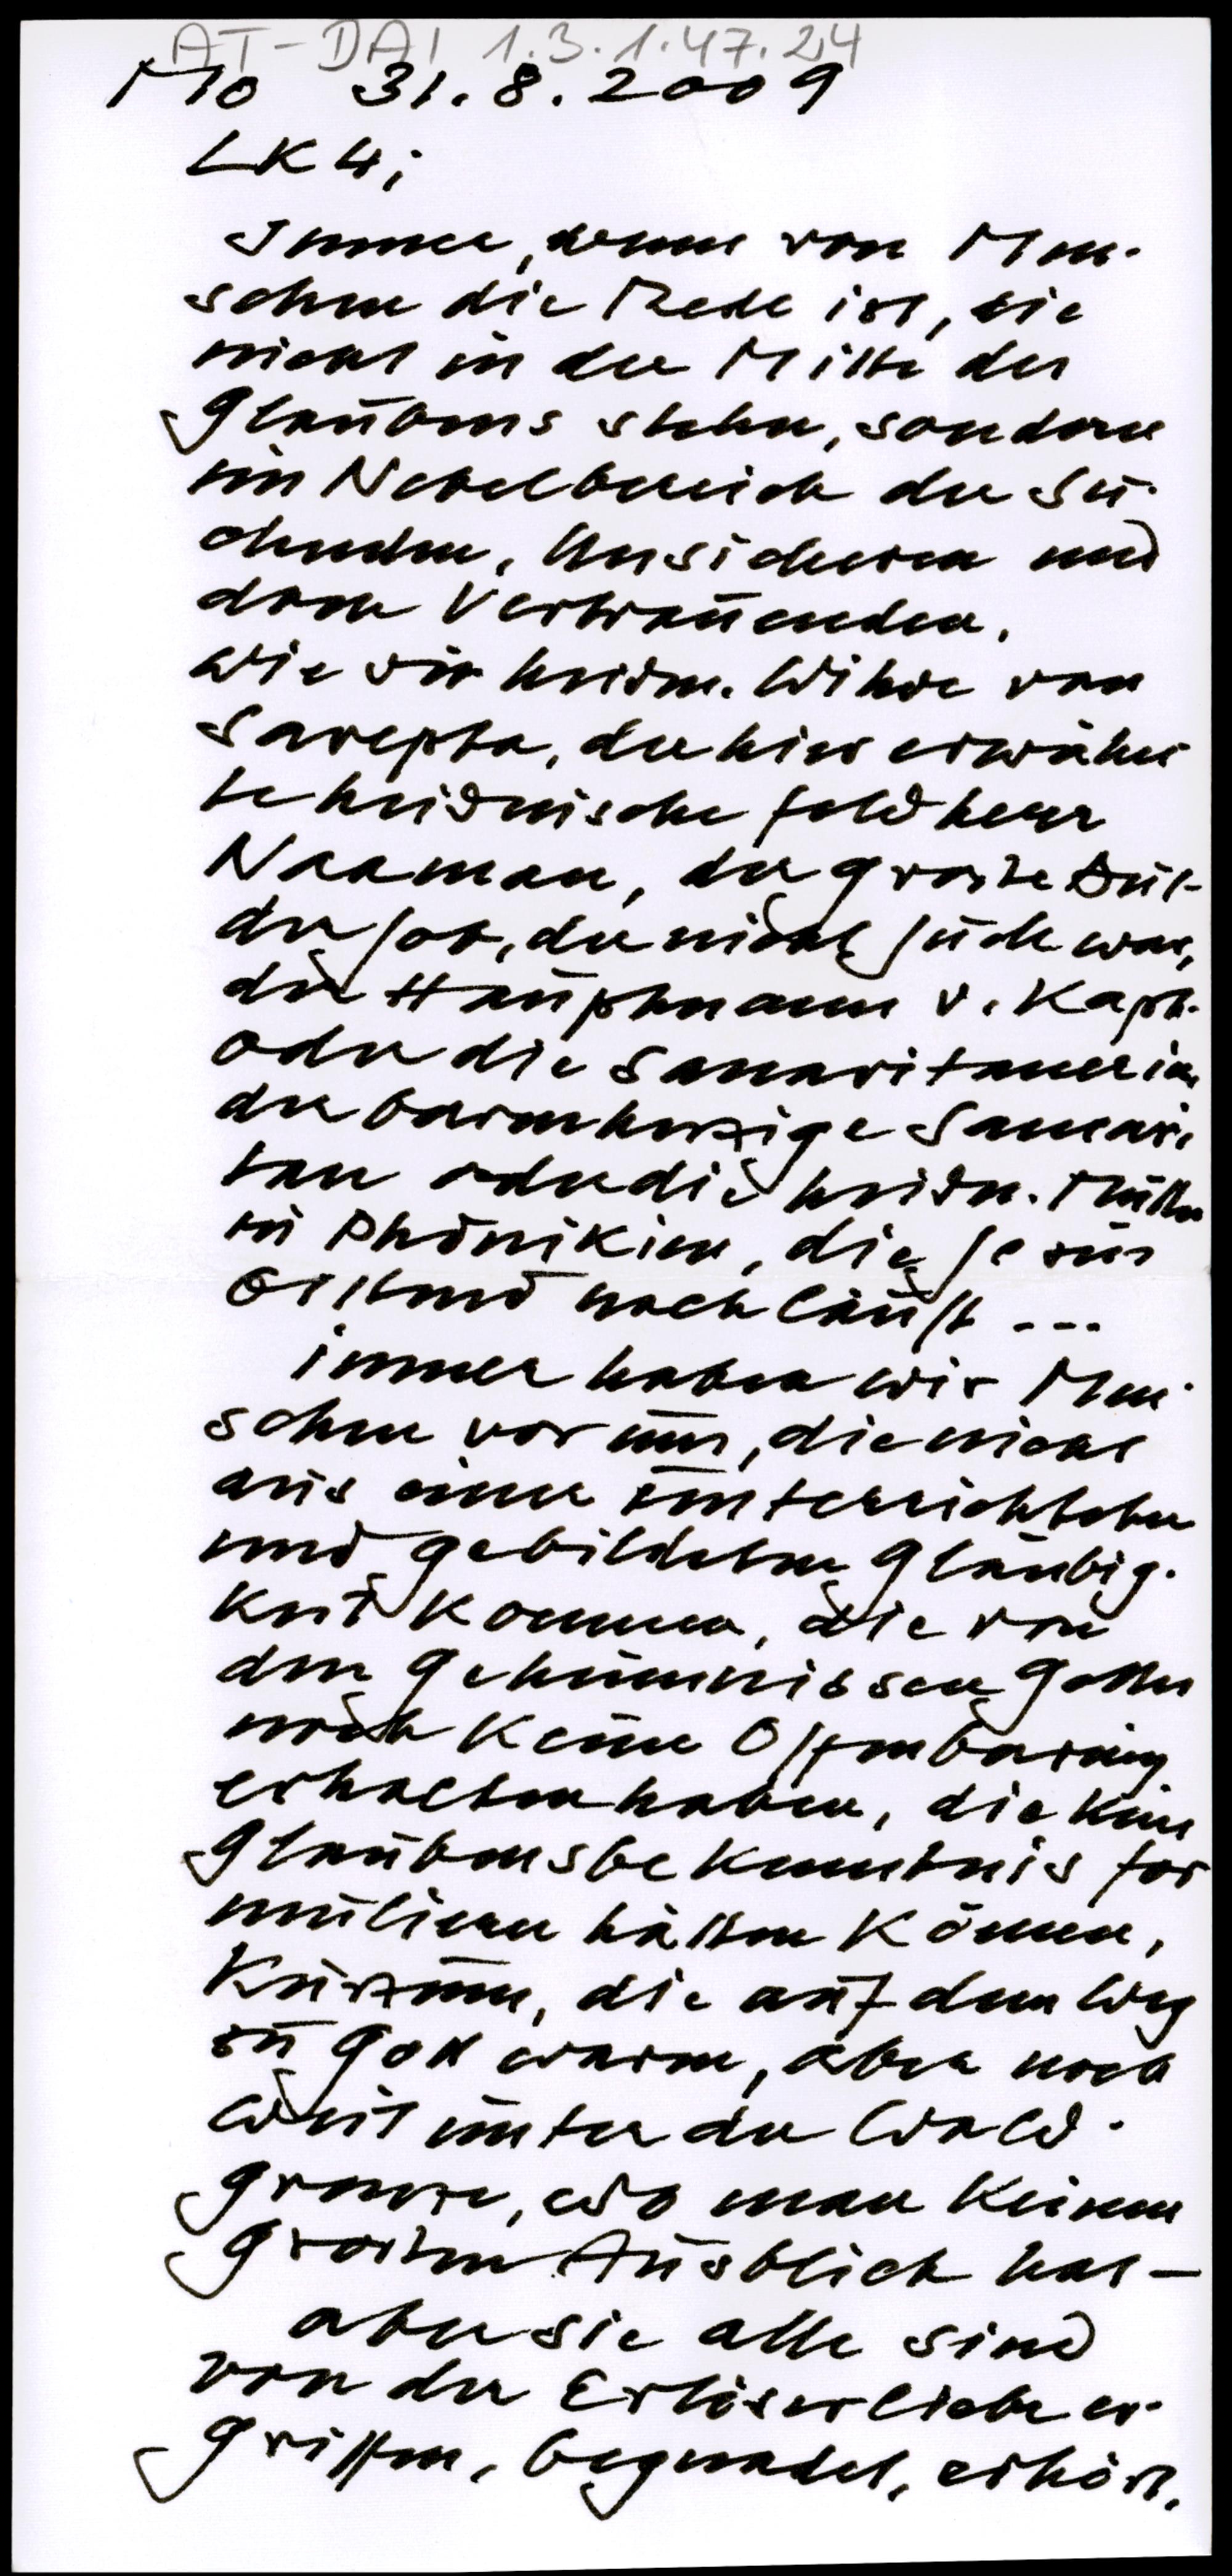 AT-DAI 1.3.1.47.24
Mo 31.8.2009
LK 4;
Immer, wenn von Men-
schen die Rede ist, die
nicht in der Mitte des
Glaubens stehen, sondern
im Nebelbereich der Su-
chenden, Unsicheren und
dann Vertrauenden.
Wie die heidn. Witwe von
Sarepta, der hier erwähn
te heidnische Feldherr
Naaman, der große Dul-
der Job, der nicht Jude war,
der Hauptmann v. Kaph.
oder die Samaritanerin,
der barmherzige Samari
tan oder die heidn. Mutter
in Phönikien, die Jesus
bittend nachläuft ...
immer haben wir Men-
schen vor uns, die nicht
aus einer unterrichteten
und gebildeten Gläubig-
keit kommen, die von
den Geheimnissen Gottes
noch keine Offenbarung
erhalten haben, die kein
Glaubensbekenntnis for
mulieren hätten können,
kurzum, die auf dem Weg
zu Gott waren, aber noch
weit unter der Wald-
grenze, wo man keinen
großen Ausblick hat –
aber sie alle sind
von der Erlöserliebe er-
griffen, begnadet, erhört.